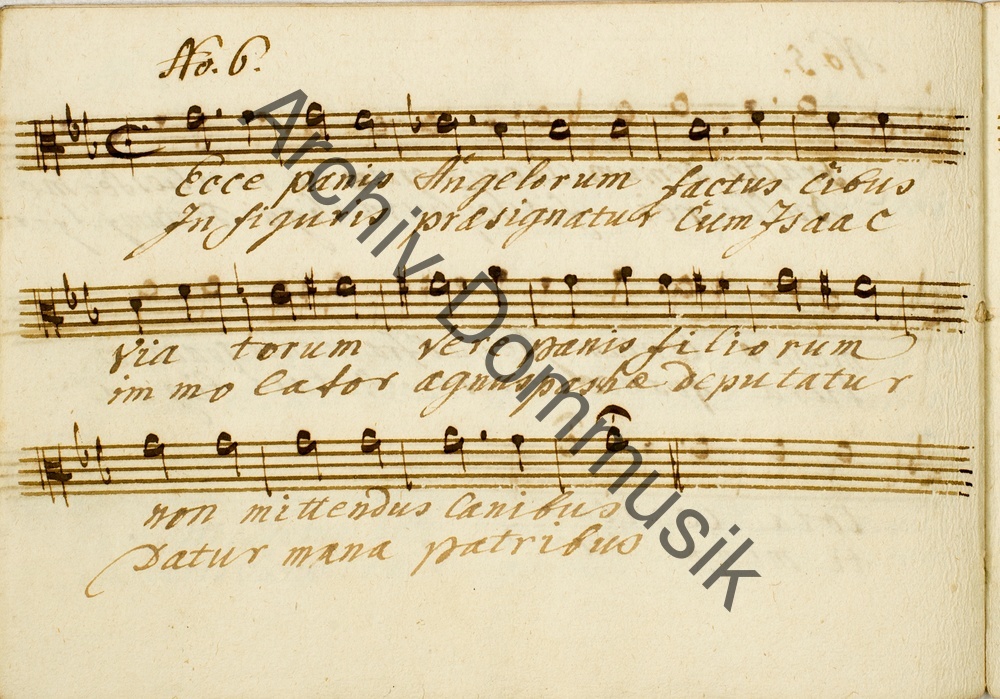 No. 6.
Ecce panis Angelorum factus Cibus
In figuris præsignatur Cum Isaac
Via torum vere panis filiorum
im mo lator agnus paschæ deputatur
non mittendus Canibus
Datur mana patribus
Archiv Dommusik